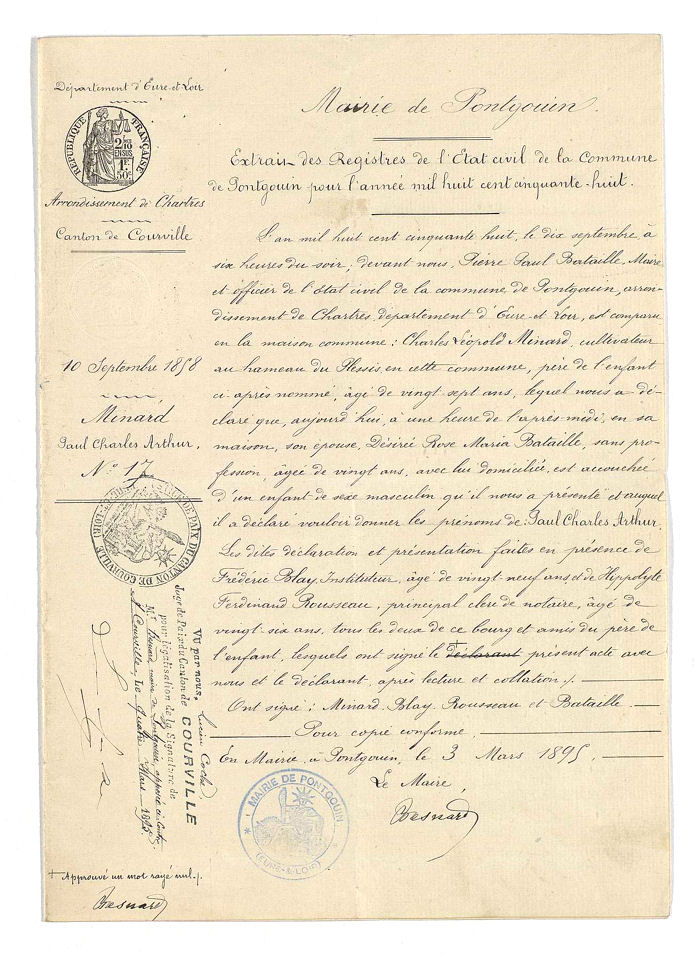 Département d'Eure-et-Loir
RÉPUBLIQUE FRANÇAISE
2/10
EN SUS
1F.
50c.
Arrondissement de Chartres
Canton de Courville
10 Septembre 1858
Minard
Paul Charles Arthur.
No 17
JUSTICE DE PAIX DU CANTON DE COURVILLE (EURE-ET-LOIR)
Vu par nous, Lucien
Juge de Paix du Canton de COURVILLE
pour légalisation de la Signature de
Mr Besnard, maire de Pontgouin, apposée ci-contre
A Courville, le quatre Mars 1895.
+ Approuvé un mot rayé nul./.
Besnard
Mairie de Pontgouin.
Extrait des Registres de l'Etat civil de la Commune
de Pontgouin pour l'année mil huit cent cinquante-huit.
L'an mil huit cent cinquante huit, le dix septembre, à
six heures du soir, devant nous, Pierre Paul Bataille, Maire
et officier de l'Etat civil de la commune de Pontgouin, arron-
dissement de Chartres, département d'Eure et Loir, est comparu
en la maison commune : Charles Léopold Minard, cultivateur
au hameau du Plessis, en cette commune, père de l'enfant
ci après nommé, âgé de vingt sept ans, lequel nous a dé-
claré que, aujourd'hui, à une heure de l'après-midi, en sa
maison, son épouse, Désirée Rose Maria Bataille, sans pro-
fession, âgée de vingt ans, avec lui domiciliée, est accouchée
d'un enfant de sexe masculin qu'il nous a présenté et auquel
il a déclaré vouloir donner les prénoms de Paul Charles Arthur.
Les dites déclaration et présentation faites en présence de
Frédéric Blay, Instituteur, âgé de vingt-neuf ans et de Hippolyte
Ferdinand Rousseau, principal clerc de notaire, âgé de
vingt-six ans, tous les deux de ce bourg et amis du père de
l'enfant, lesquels ont signé le + déclarant présent acte avec
nous et le déclarant, après lecture et collation./.
Ont signé : Minard, Blay, Rousseau et Bataille.
Pour copie conforme.
En Mairie, à Pontgouin, le 3 Mars 1895.
Le Maire,
Besnard
MAIRIE DE PONTGOUIN
(EURE-&-LOIR)